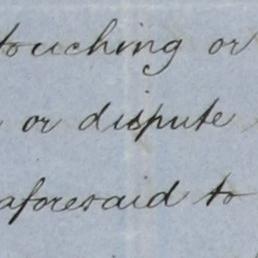 touching or
or dispute
aforesaid to